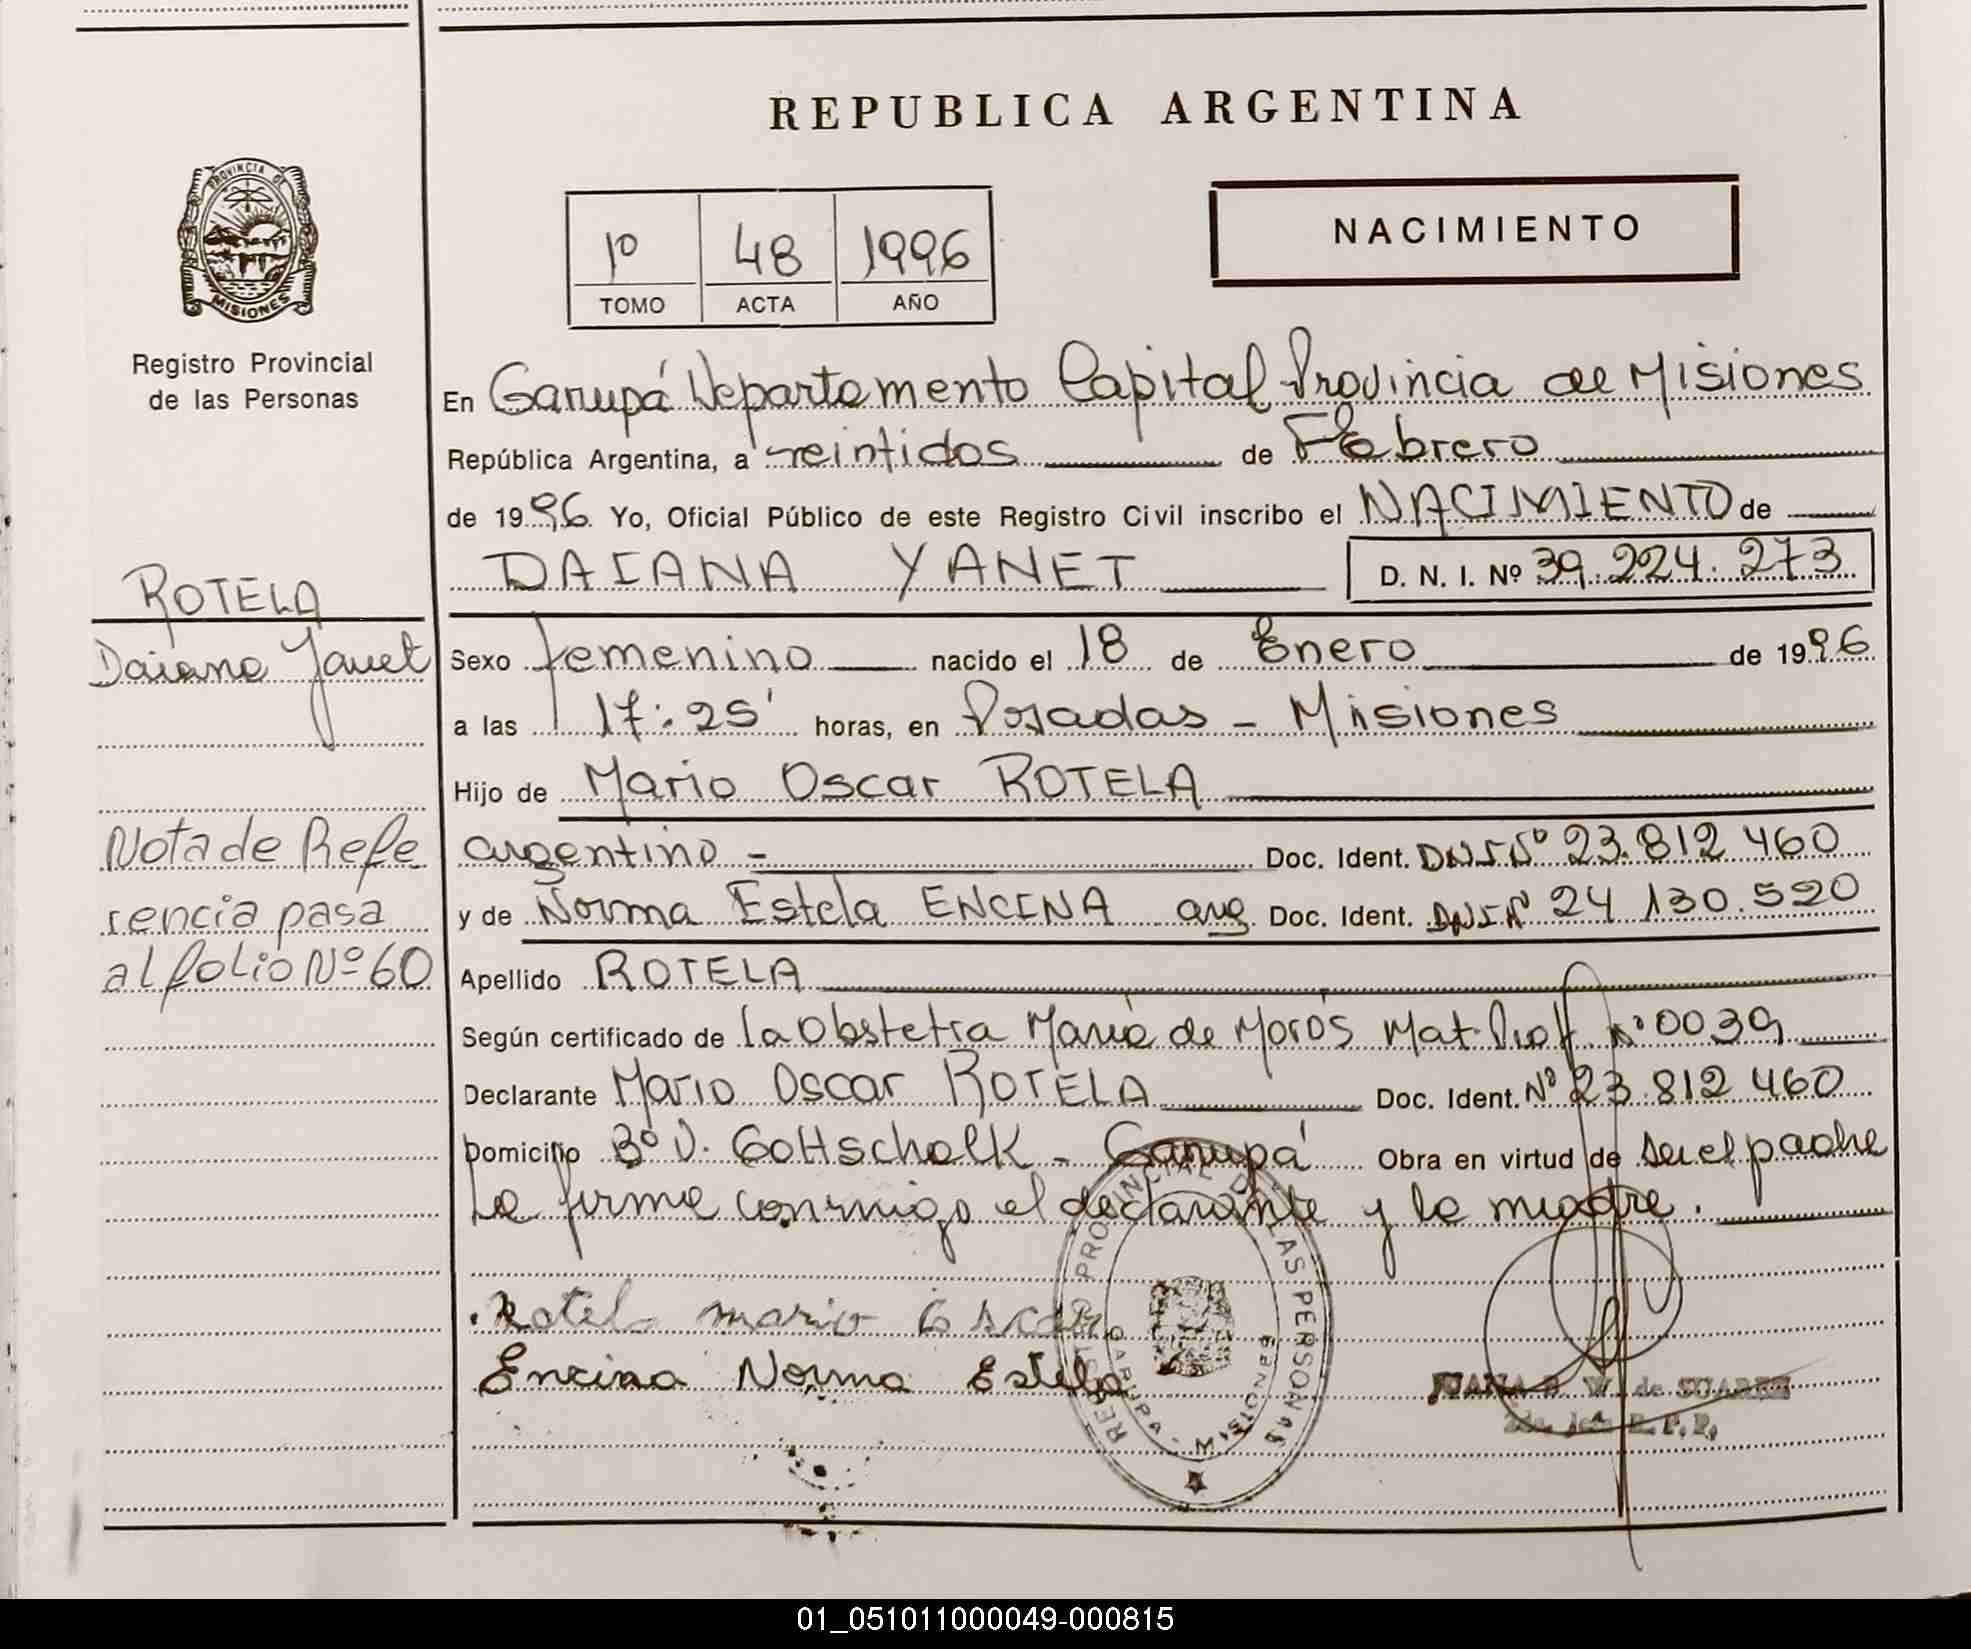 REPUBLICA ARGENTINA
PROVINCIA DE
MISIONES
Registro Provincial
de las Personas
1º 48 1996
TOMO ACTA AÑO
NACIMIENTO
En Garupá Departamento Capital Provincia de Misiones
República Argentina, a veintidos de Febrero
de 1996 Yo, Oficial Público de este Registro Civil inscribo el NACIMIENTO de
DAIANA YANET D. N. I. Nº 39.224.273
ROTELA
Daiana Yanet
Sexo femenino nacido el 18 de Enero de 1996
a las 17:25' horas, en Posadas - Misiones
Hijo de Mario Oscar ROTELA
argentino - Doc. Ident. DNI Nº 23.812 460
y de Norma Estela ENCINA arg. Doc. Ident. DNI Nº 24 130.520
Apellido ROTELA
Nota de Refe
rencia pasa
al folio Nº 60
Según certificado de la Obstetra María de Morós Mat. Prof Nº 0039
Declarante Mario Oscar ROTELA Doc. Ident. Nº 23.812 460
Domicilio Bº V. Gottschalk - Garupá Obra en virtud de ser el padre
La firma conmigo el declarante y la madre.
Rotela mario Oscar
Encina Norma Estela
REGISTRO PROVINCIAL DE LAS PERSONAS
GARUPA - MISIONES
JUANA W. de SUAREZ
R.P.P.
01_051011000049-000815